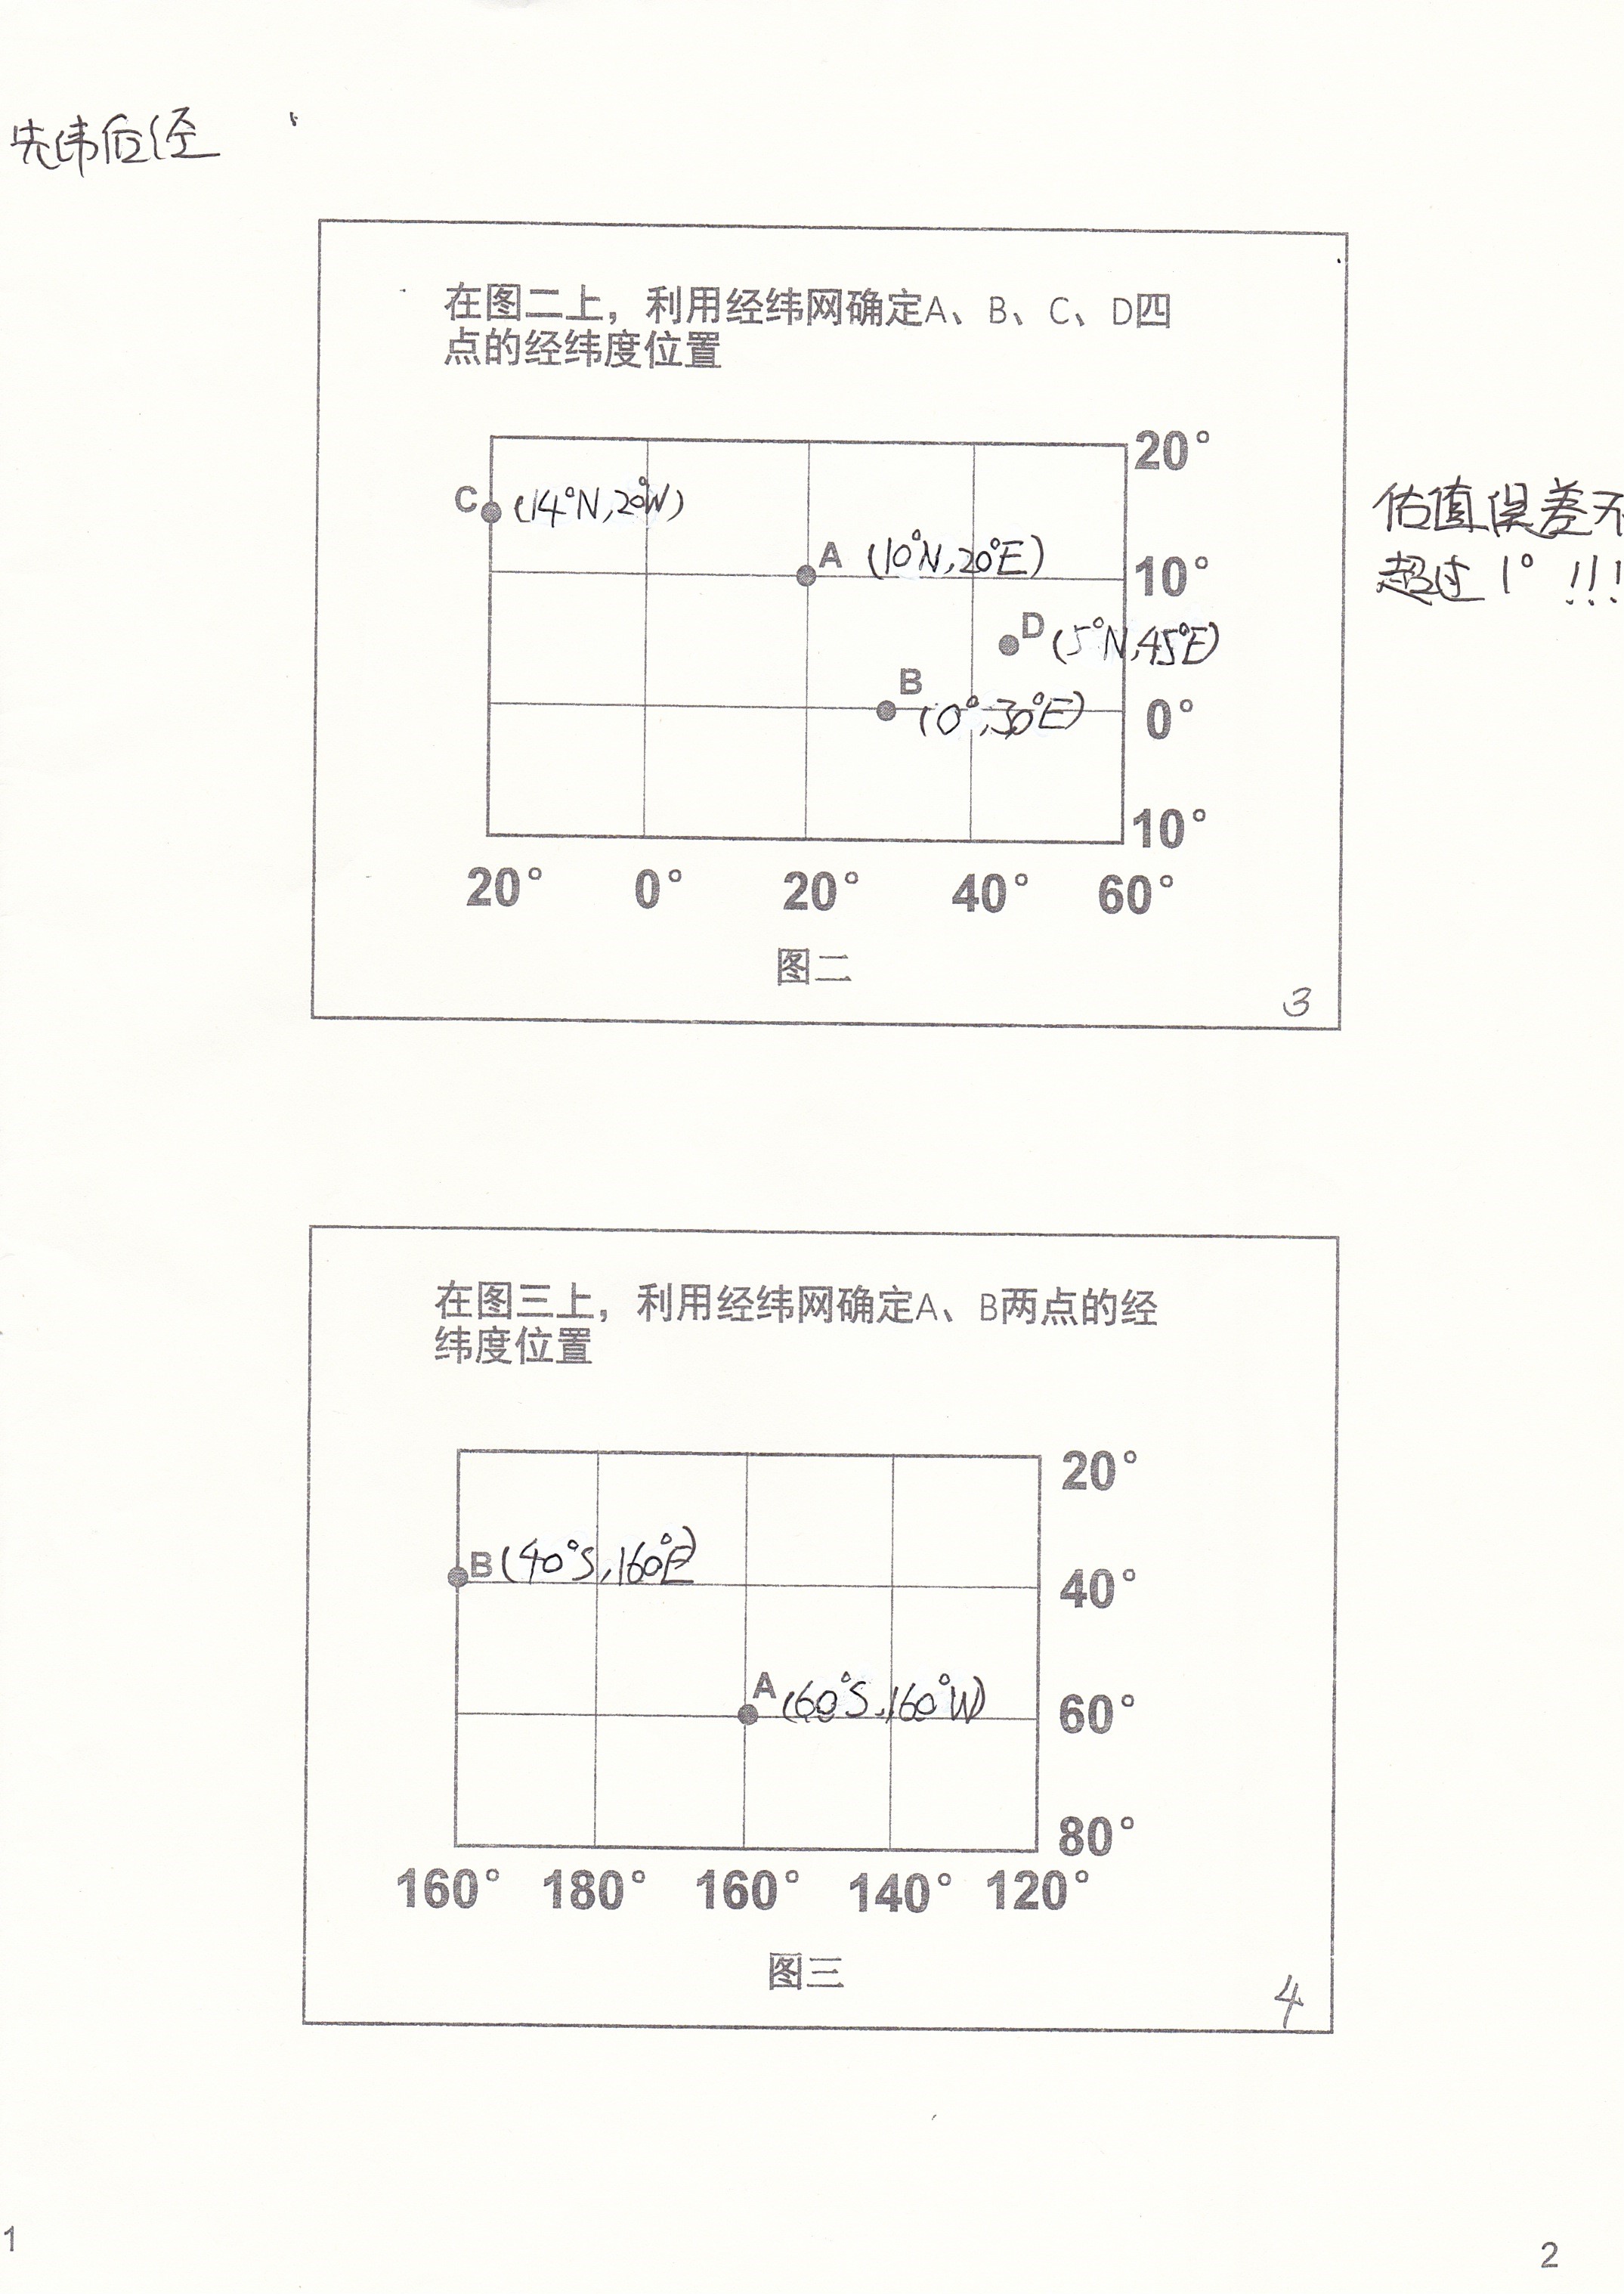 先纬后经
在图二上，利用经纬网确定A、B、C、D四
点的经纬度位置
20°
C (14°N,20°W)
估值误差不
超过1°!!!
A (10°N,20°E)
10°
D (5°N,45°E)
B
(0°,30°E)
0°
10°
20° 0° 20° 40° 60°
图二
3
在图三上，利用经纬网确定A、B两点的经
纬度位置
20°
B (40°S,160°E)
40°
A (60°S,160°W)
60°
80°
160° 180° 160° 140° 120°
图三
4
1
2